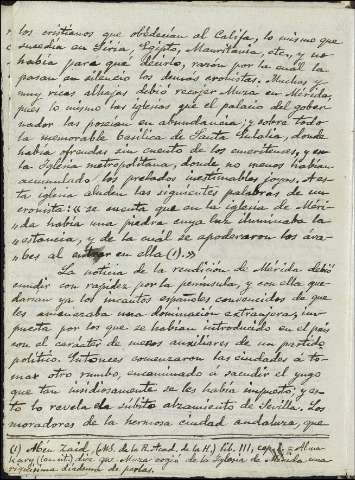 los cristianos que obedecian al Califa, lo mismo que
sucedia en Siria, Egipto, Mauritania, etc., y no
habia para qué decirlo, razón por la cuál la
pasan en silencio los demás cronistas. Muchas y
muy ricas alhajas debió recojer Muza en Mérida,
pues lo mismo las iglesias que el palacio del gober-
nador las poseian en abundancia; y sobre todo
la memorable basílica de Santa Eulalia, donde
habia ofrendas sin cuento de los emeritenses, y en
la Iglesia metropolitana, donde no menos habian
acumulado los prelados inestimables joyas. A es-
ta iglesia aluden las siguientes palabras de un
cronista: «se cuenta que en la iglesia de Méri-
»da habia una piedra cuya luz iluminaba la
»estancia, y de la cuál se apoderaron los ára-
»bes al entrar en ella (1).»
La noticia de la rendición de Mérida debió
cundir con rapidez por la península, y con ella que-
darian ya los incautos españoles convencidos de que
les amenazaba una dominación extranjera, im-
puesta por los que se habian introducido en el pais
con el carácter de meros auxiliares de un partido
político. Entonces comenzaron las ciudades á to-
mar otro rumbo, encaminado á sacudir el yugo
que tan insidiosamente se les habia impuesto, y es-
to lo revela el súbito alzamiento de Sevilla. Los
moradores de la hermosa ciudad andaluza, que
(1) Aben Zaid, (MS. de la R. Acad. de la H.) lib. III, cap.
dice que Muza cogió de la Iglesia de Mérida una
riquísima diadema de perlas.